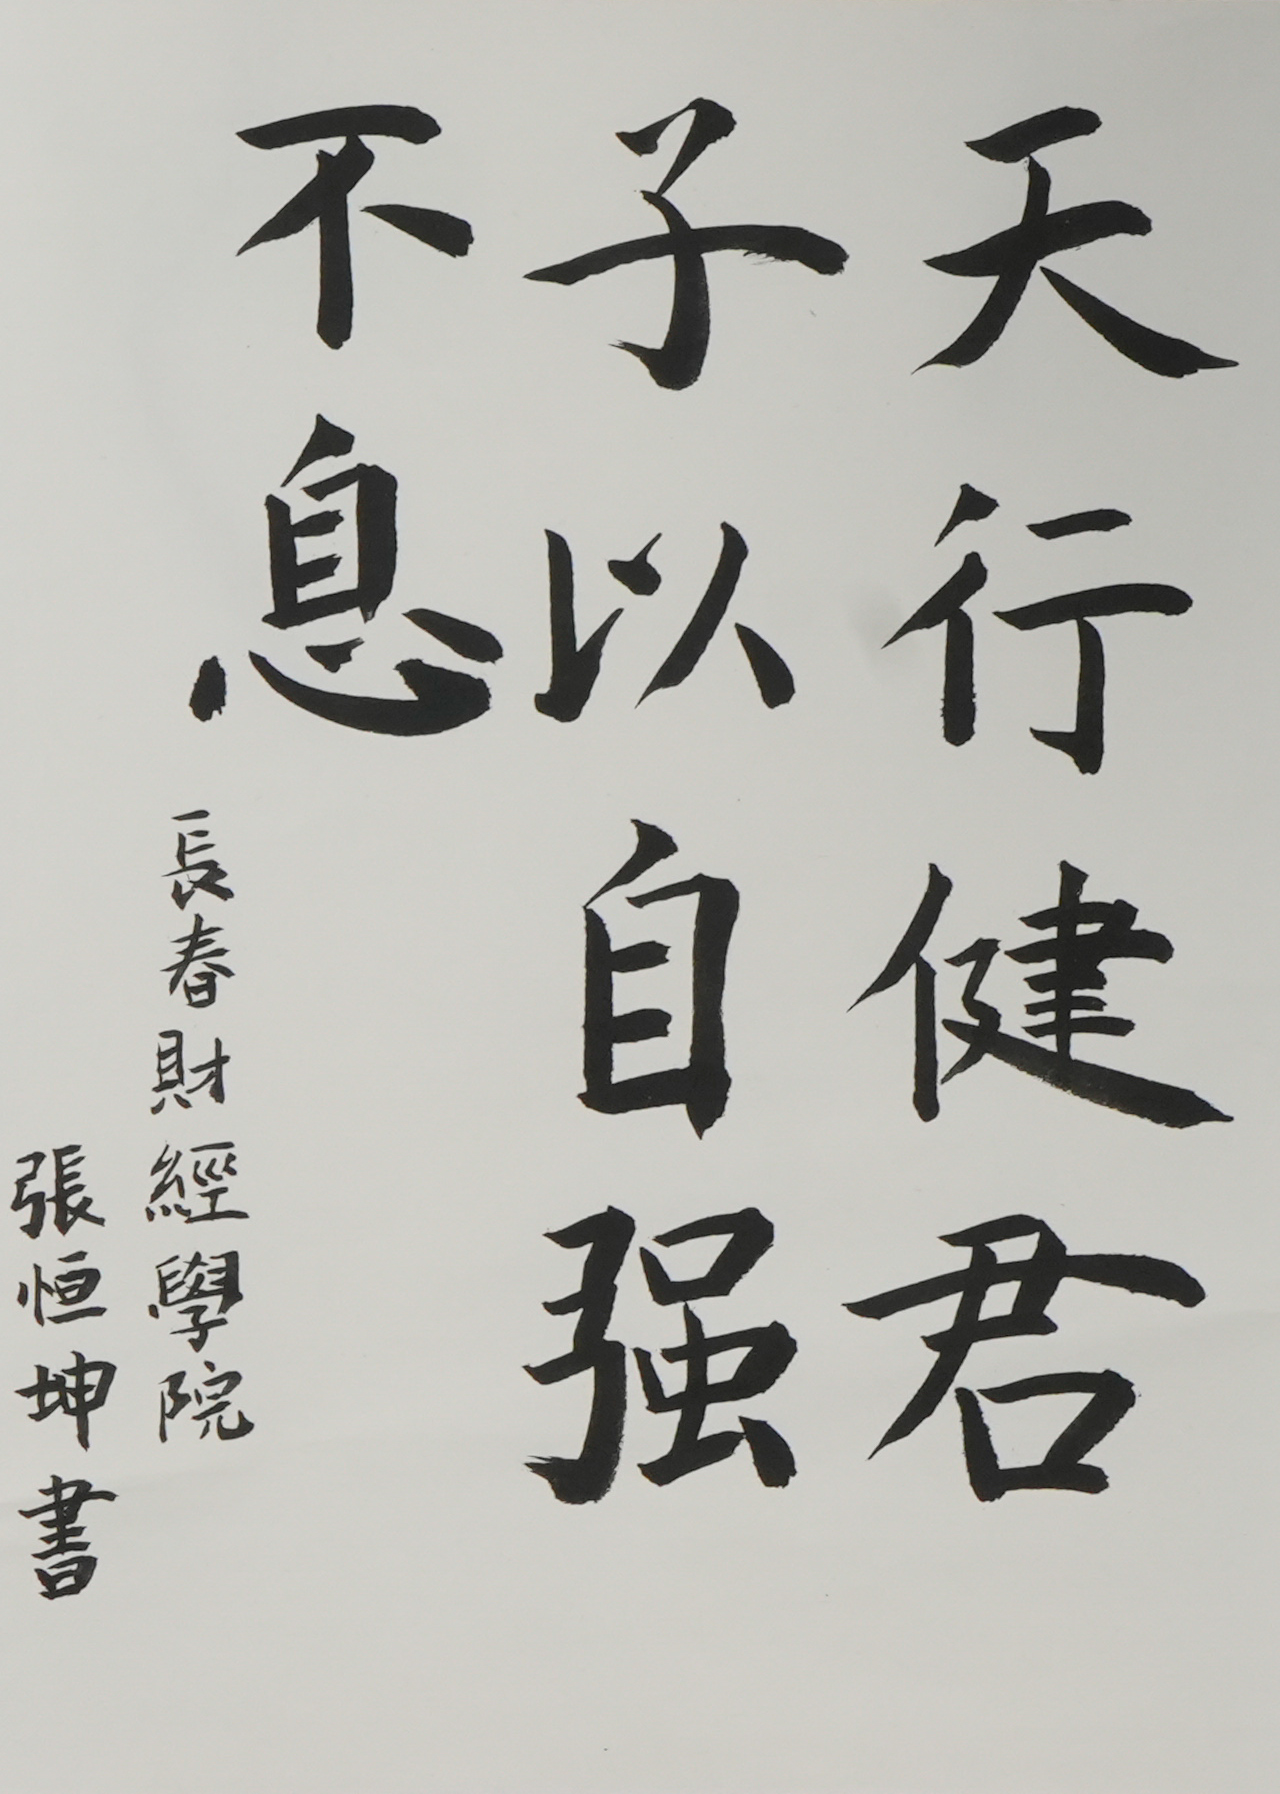 天行健君
子以自强
不息
長春財經學院
張恒坤書